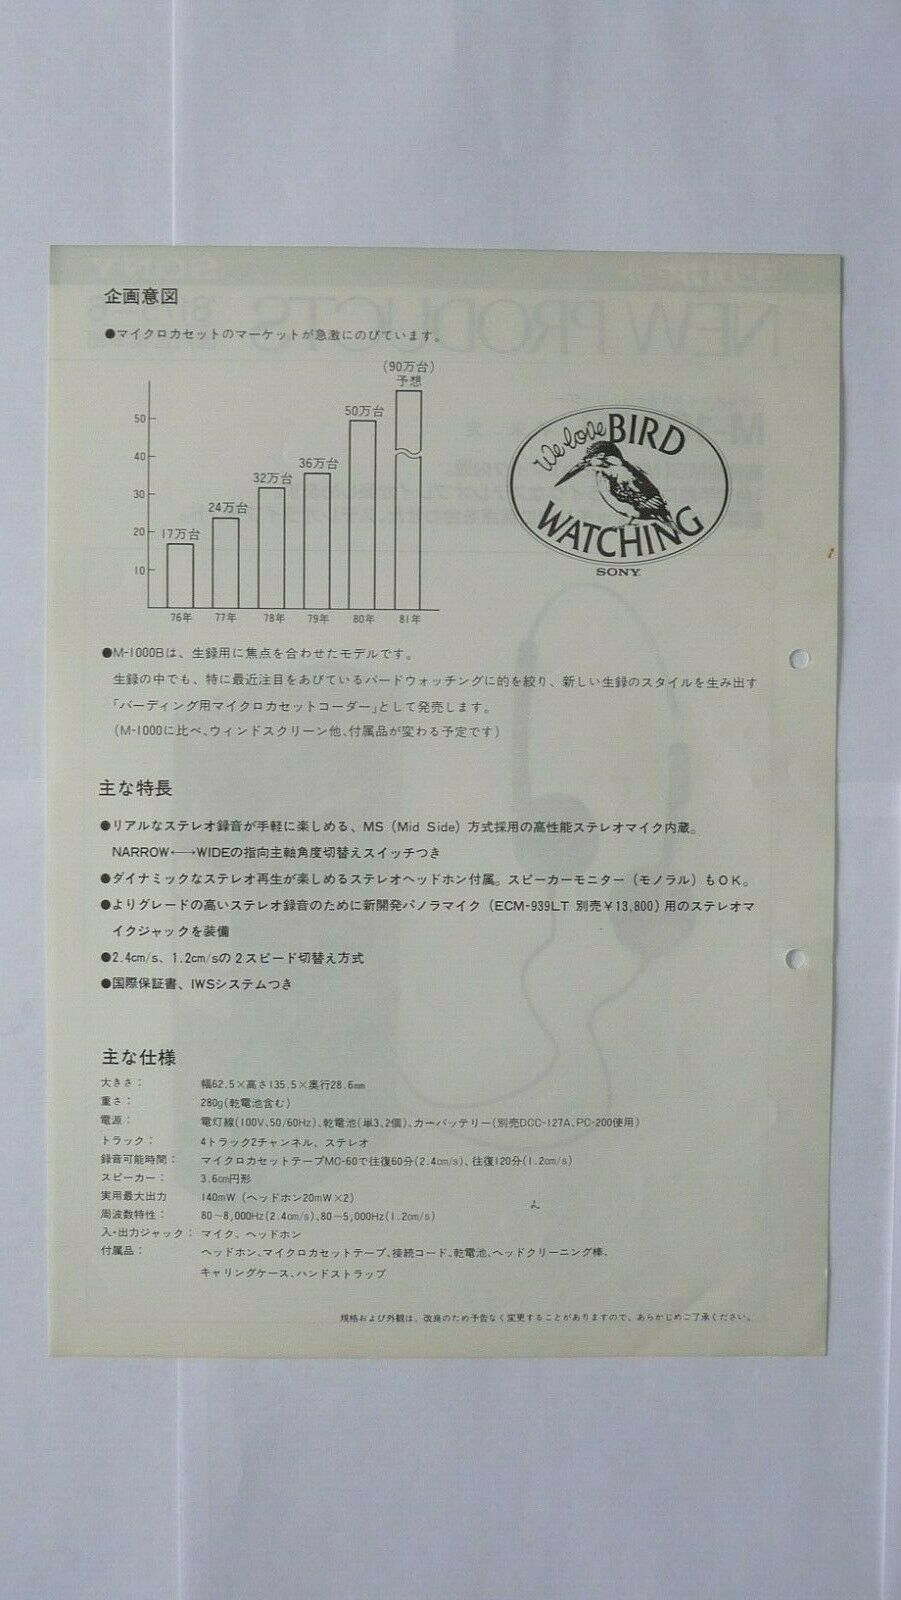 企画意図
●マイクロカセットのマーケットが急激にのびています。
(90万台)
予想
50万台
36万台
32万台
24万台
17万台
50
40
30
20
10
76年 77年 78年 79年 80年 81年
We love BIRD
WATCHING
SONY
●M-1000Bは、生録用に焦点を合わせたモデルです。
生録の中でも、特に最近注目をあびているバードウォッチングに的を絞り、新しい生録のスタイルを生み出す
「バーディング用マイクロカセットコーダー」として発売します。
(M-1000に比べ、ウィンドスクリーン他、付属品が変わる予定です)
主な特長
●リアルなステレオ録音が手軽に楽しめる、MS (Mid Side) 方式採用の高性能ステレオマイク内蔵。
NARROW⟷WIDEの指向主軸角度切替えスイッチつき
●ダイナミックなステレオ再生が楽しめるステレオヘッドホン付属。スピーカーモニター (モノラル) もOK。
●よりグレードの高いステレオ録音のために新開発パノラマイク (ECM-939LT 別売¥13,800) 用のステレオマ
イクジャックを装備
●2.4cm/s、1.2cm/sの2スピード切替え方式
●国際保証書、IWSシステムつき
主な仕様
大きさ： 幅62.5×高さ135.5×奥行28.6mm
重さ： 280g(乾電池含む)
電源： 電灯線(100V、50/60Hz)、乾電池(単3、2個)、カーバッテリー(別売DCC-127A、PC-200使用)
トラック： 4トラック2チャンネル、ステレオ
録音可能時間： マイクロカセットテープMC-60で往復60分(2.4cm/s)、往復120分(1.2cm/s)
スピーカー： 3.6cm円形
実用最大出力 140mW (ヘッドホン20mW×2)
周波数特性： 80〜8,000Hz(2.4cm/s)、80〜5,000Hz(1.2cm/s)
入・出力ジャック： マイク、ヘッドホン
付属品： ヘッドホン、マイクロカセットテープ、接続コード、乾電池、ヘッドクリーニング棒、
キャリングケース、ハンドストラップ
規格および外観は、改良のため予告なく変更することがありますので、あらかじめご了承ください。